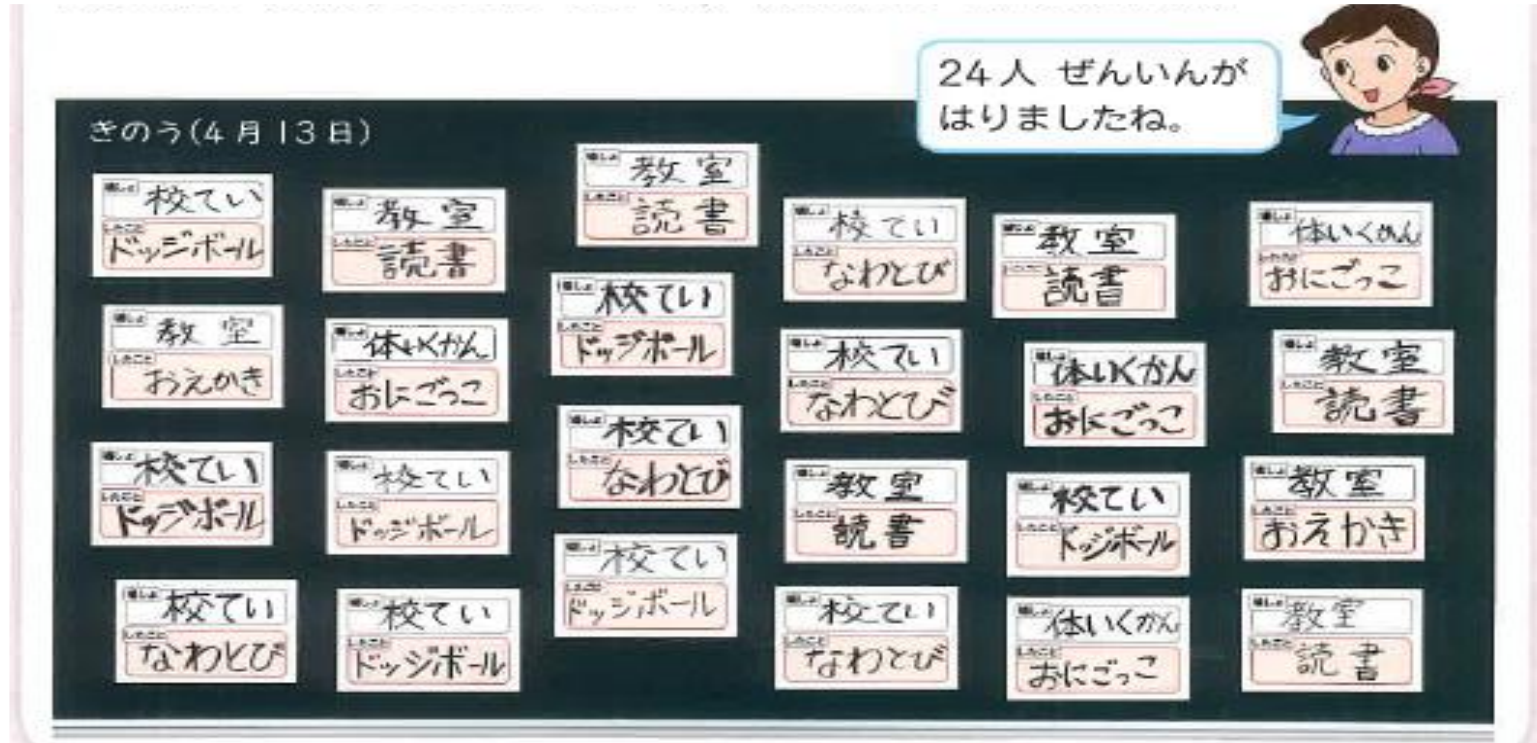 24人 ぜんいんが
はりましたね。
きのう(4月13日)
場しょ 校てい
したこと ドッジボール
場しょ 教室
したこと おえかき
場しょ 校てい
したこと ドッジボール
場しょ 校てい
したこと なわとび
場しょ 教室
したこと 読書
場しょ 体いくかん
したこと おにごっこ
場しょ 校てい
したこと ドッジボール
場しょ 校てい
したこと ドッジボール
場しょ 教室
したこと 読書
場しょ 校てい
したこと ドッジボール
場しょ 校てい
したこと なわとび
場しょ 校てい
したこと ドッジボール
場しょ 校てい
したこと なわとび
場しょ 校てい
したこと なわとび
場しょ 教室
したこと 読書
場しょ 校てい
したこと なわとび
場しょ 教室
したこと 読書
場しょ 体いくかん
したこと おにごっこ
場しょ 校てい
したこと ドッジボール
場しょ 体いくかん
したこと おにごっこ
場しょ 体いくかん
したこと おにごっこ
場しょ 教室
したこと 読書
場しょ 教室
したこと おえかき
場しょ 教室
したこと 読書